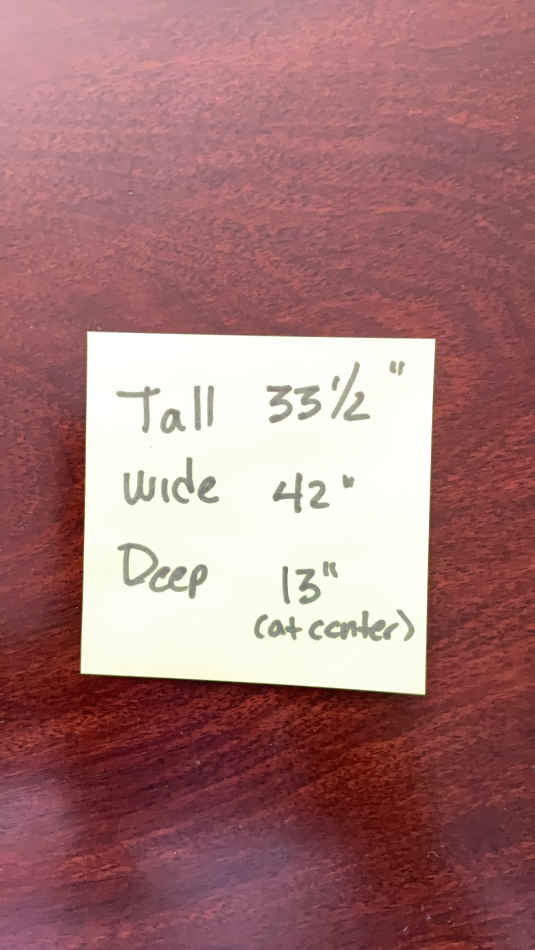 Tall 33 1/2"
Wide 42"
Deep 13"
(at center)